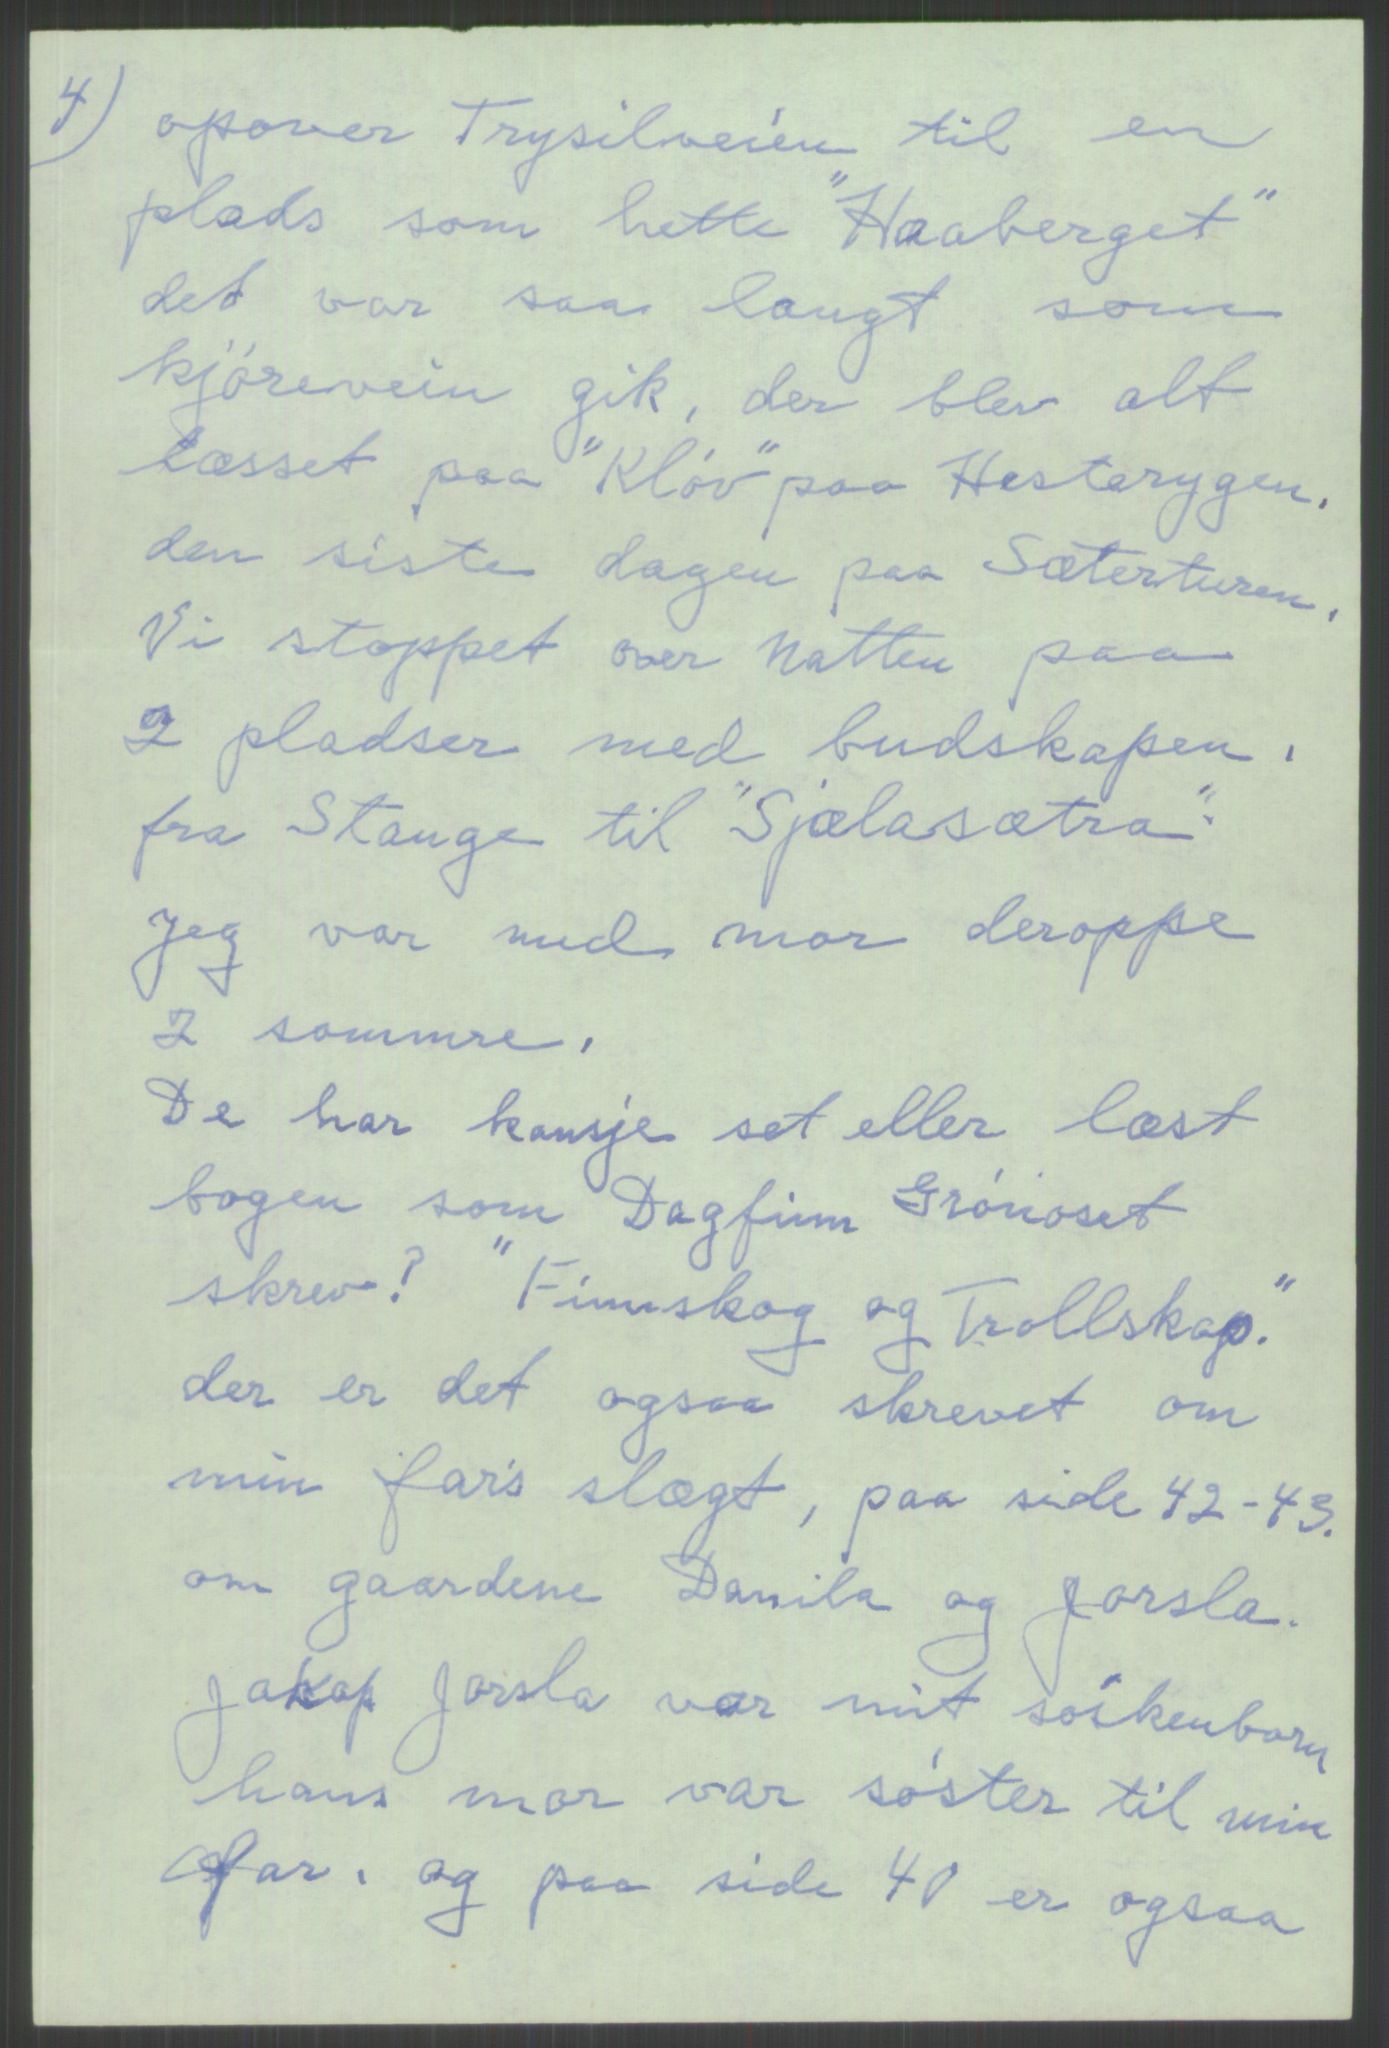 4) opover Trysilveien til en
plads som hette "Haaberget"
det var saa langt som
kjörevein gik, der blev alt
læsset paa "Klöv" paa Hesterygen.
den siste dagen paa Sæterturen.
Vi stoppet over Natten paa
2 pladser med budskapen.
fra Stange til "Sjælasætra".
Jeg var med mor deroppe
2 sommre.
De har kansje set eller læst
bogen som Dagfinn Grönoset
skrev? "Finnskog og Trollskap."
der er det ogsaa skrevet om
min far's slægt, paa side 42-43.
om gaardene Danila og Jorsla.
Jakop Jorsla var mit söskenbarn
hans mor var söster til min
far. og paa side 40 er ogsaa